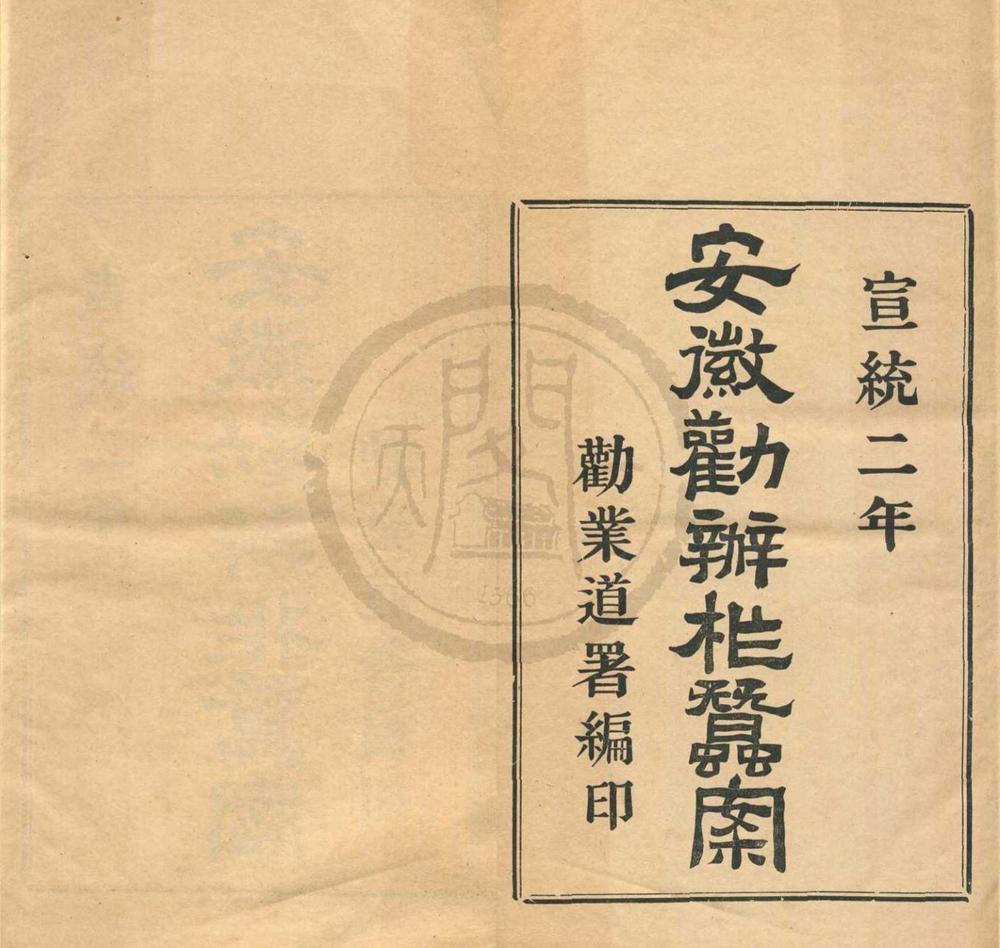 宣統二年
安徽勸辦柞蠶案
勸業道署編印